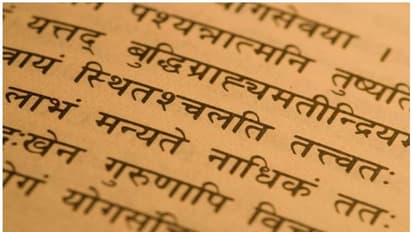 गसेवया ।
पश्यन्नात्मनि तुष्यति
यत्तद् बुद्धिग्राह्यमतीन्द्रियम
वायं स्थितश्चलति तत्त्वतः
लाभं मन्यते नाधिकं ततः
ःखेन गुरुणापि विच
योगं